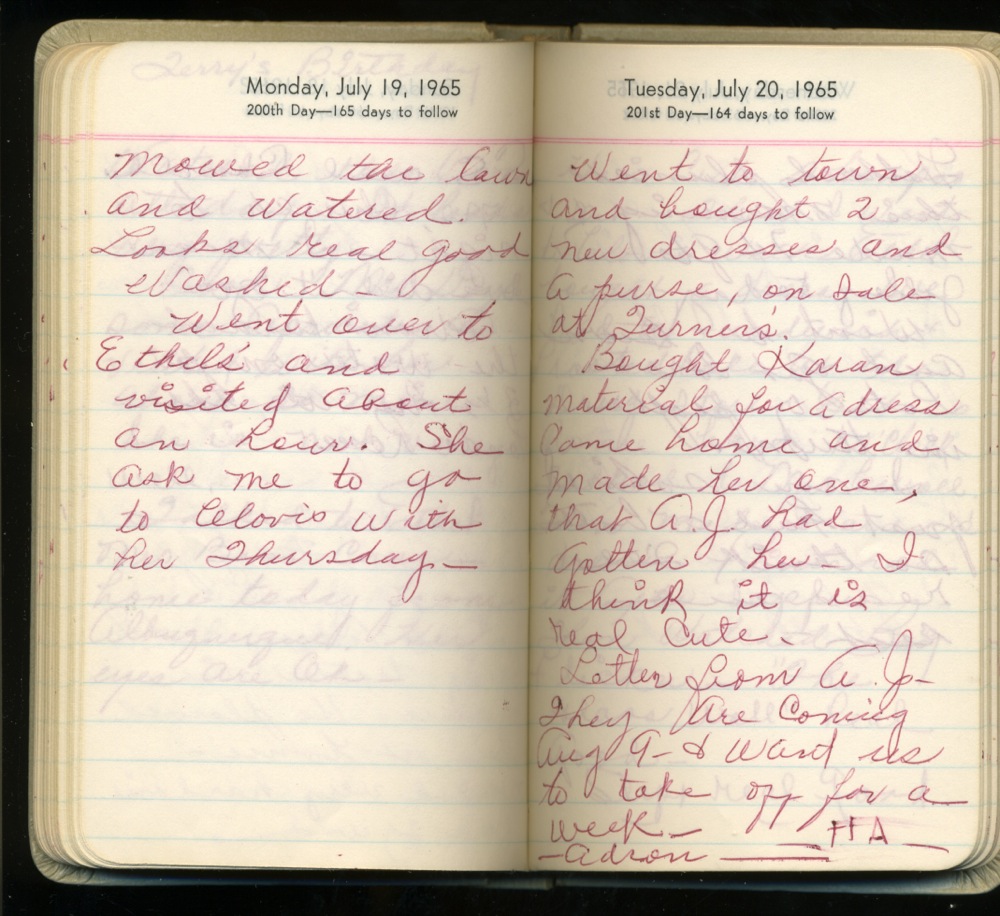 Monday, July 19, 1965
200th Day—165 days to follow
Mowed the lawn
and watered.
Looks real good
Washed -
Went over to
Ethel's and
visited about
an hour. She
ask me to go
to Clovis with
her Thursday -
Tuesday, July 20, 1965
201st Day—164 days to follow
Went to town
and bought 2
new dresses and
a purse, on sale
at Turner's.
Bought Karan
material for a dress
Came home and
made her one,
that A.J. had
gotten her - I
think it is
real cute -
Letter from A.J-
They are coming
Aug 9 - & want us
to take off for a
week -